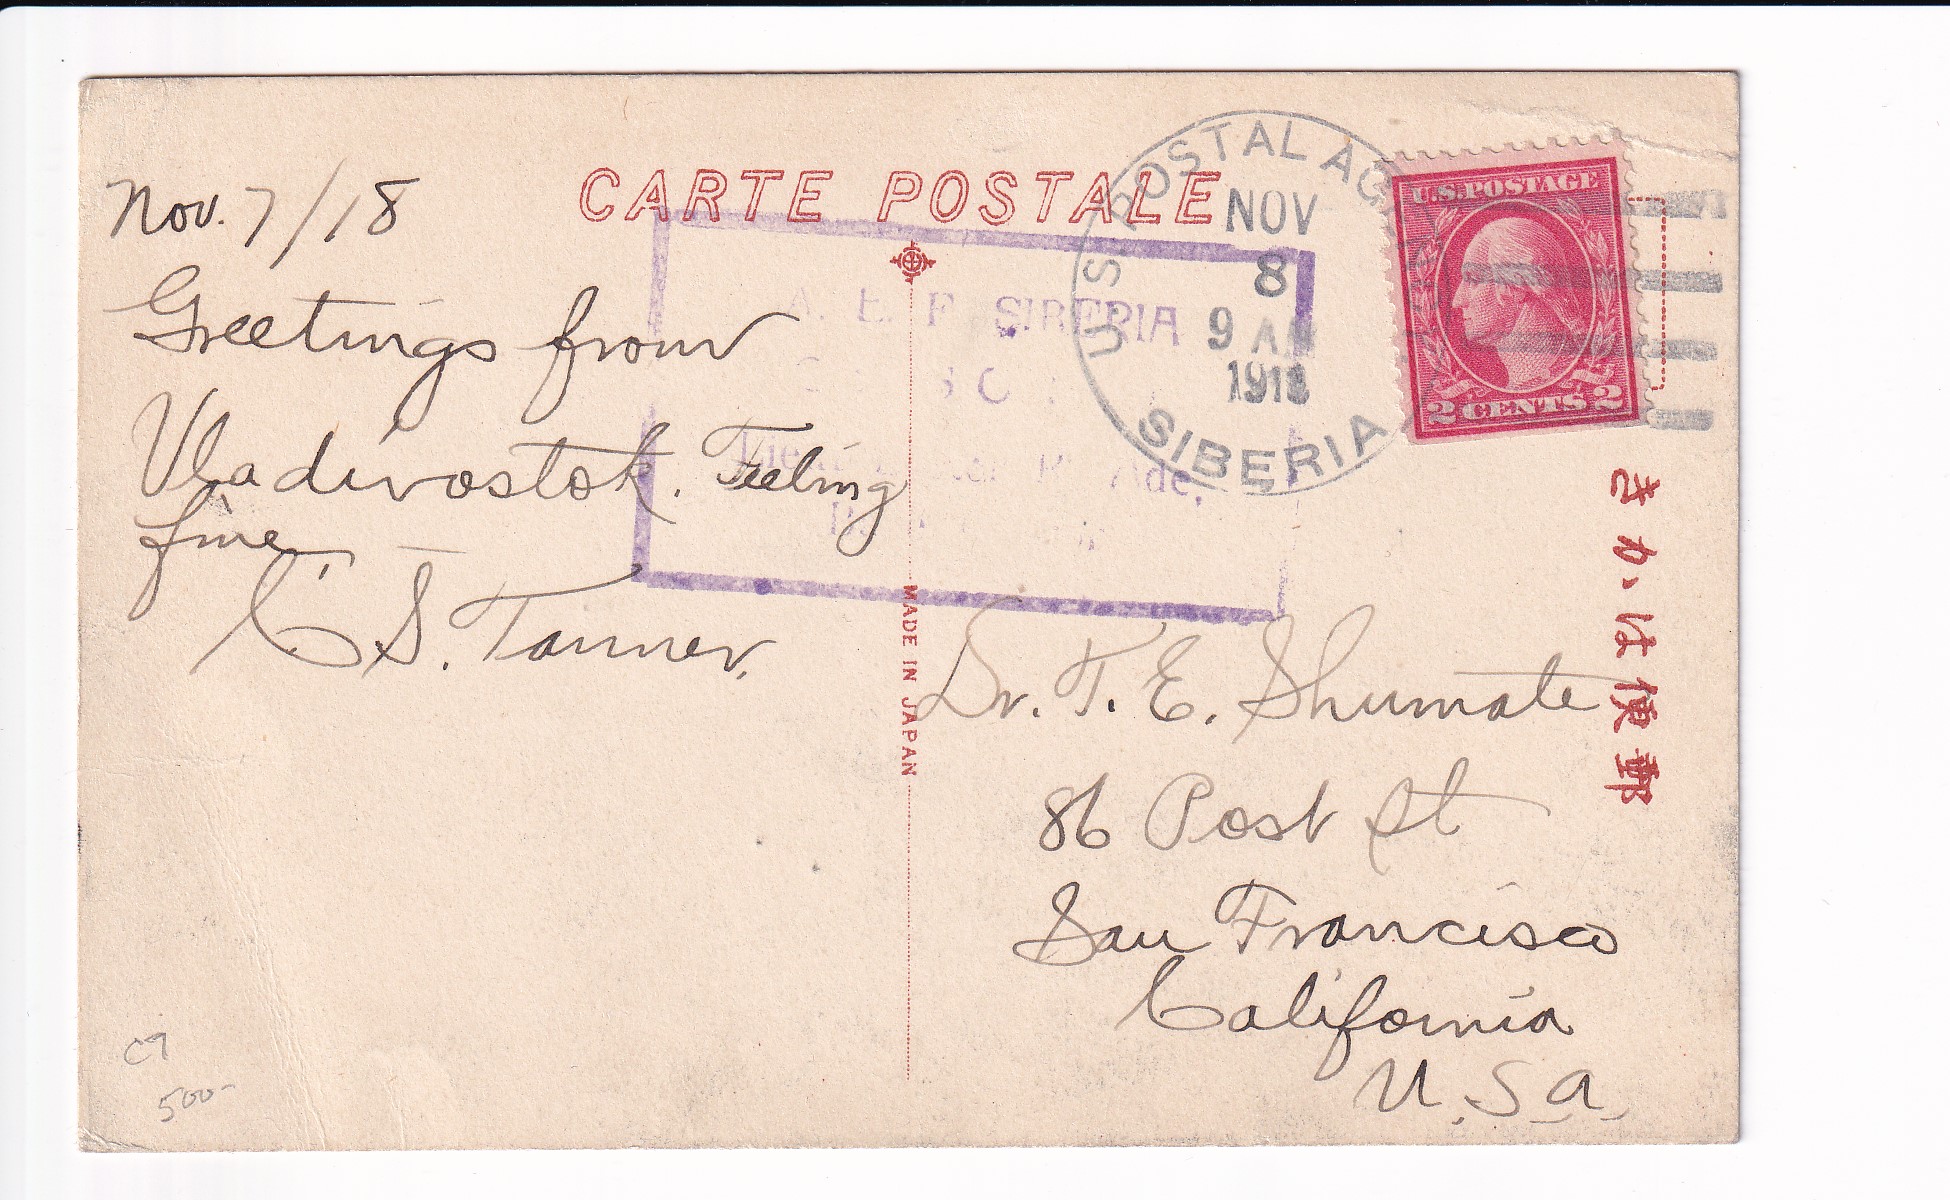 CARTE POSTALE
Nov. 7/18
Greetings from
Vladivostok. Feeling
fine.
C. S. Tanner.
A. E. F. SIBERIA
Ade,
U.S. POSTAL
NOV
8
9 AM
1918
SIBERIA
U.S. POSTAGE
2 CENTS 2
MADE IN JAPAN
Dr. T. E. Shumate
86 Post St
San Francisco
California
U.S.A.
郵便はかき
C9
500-